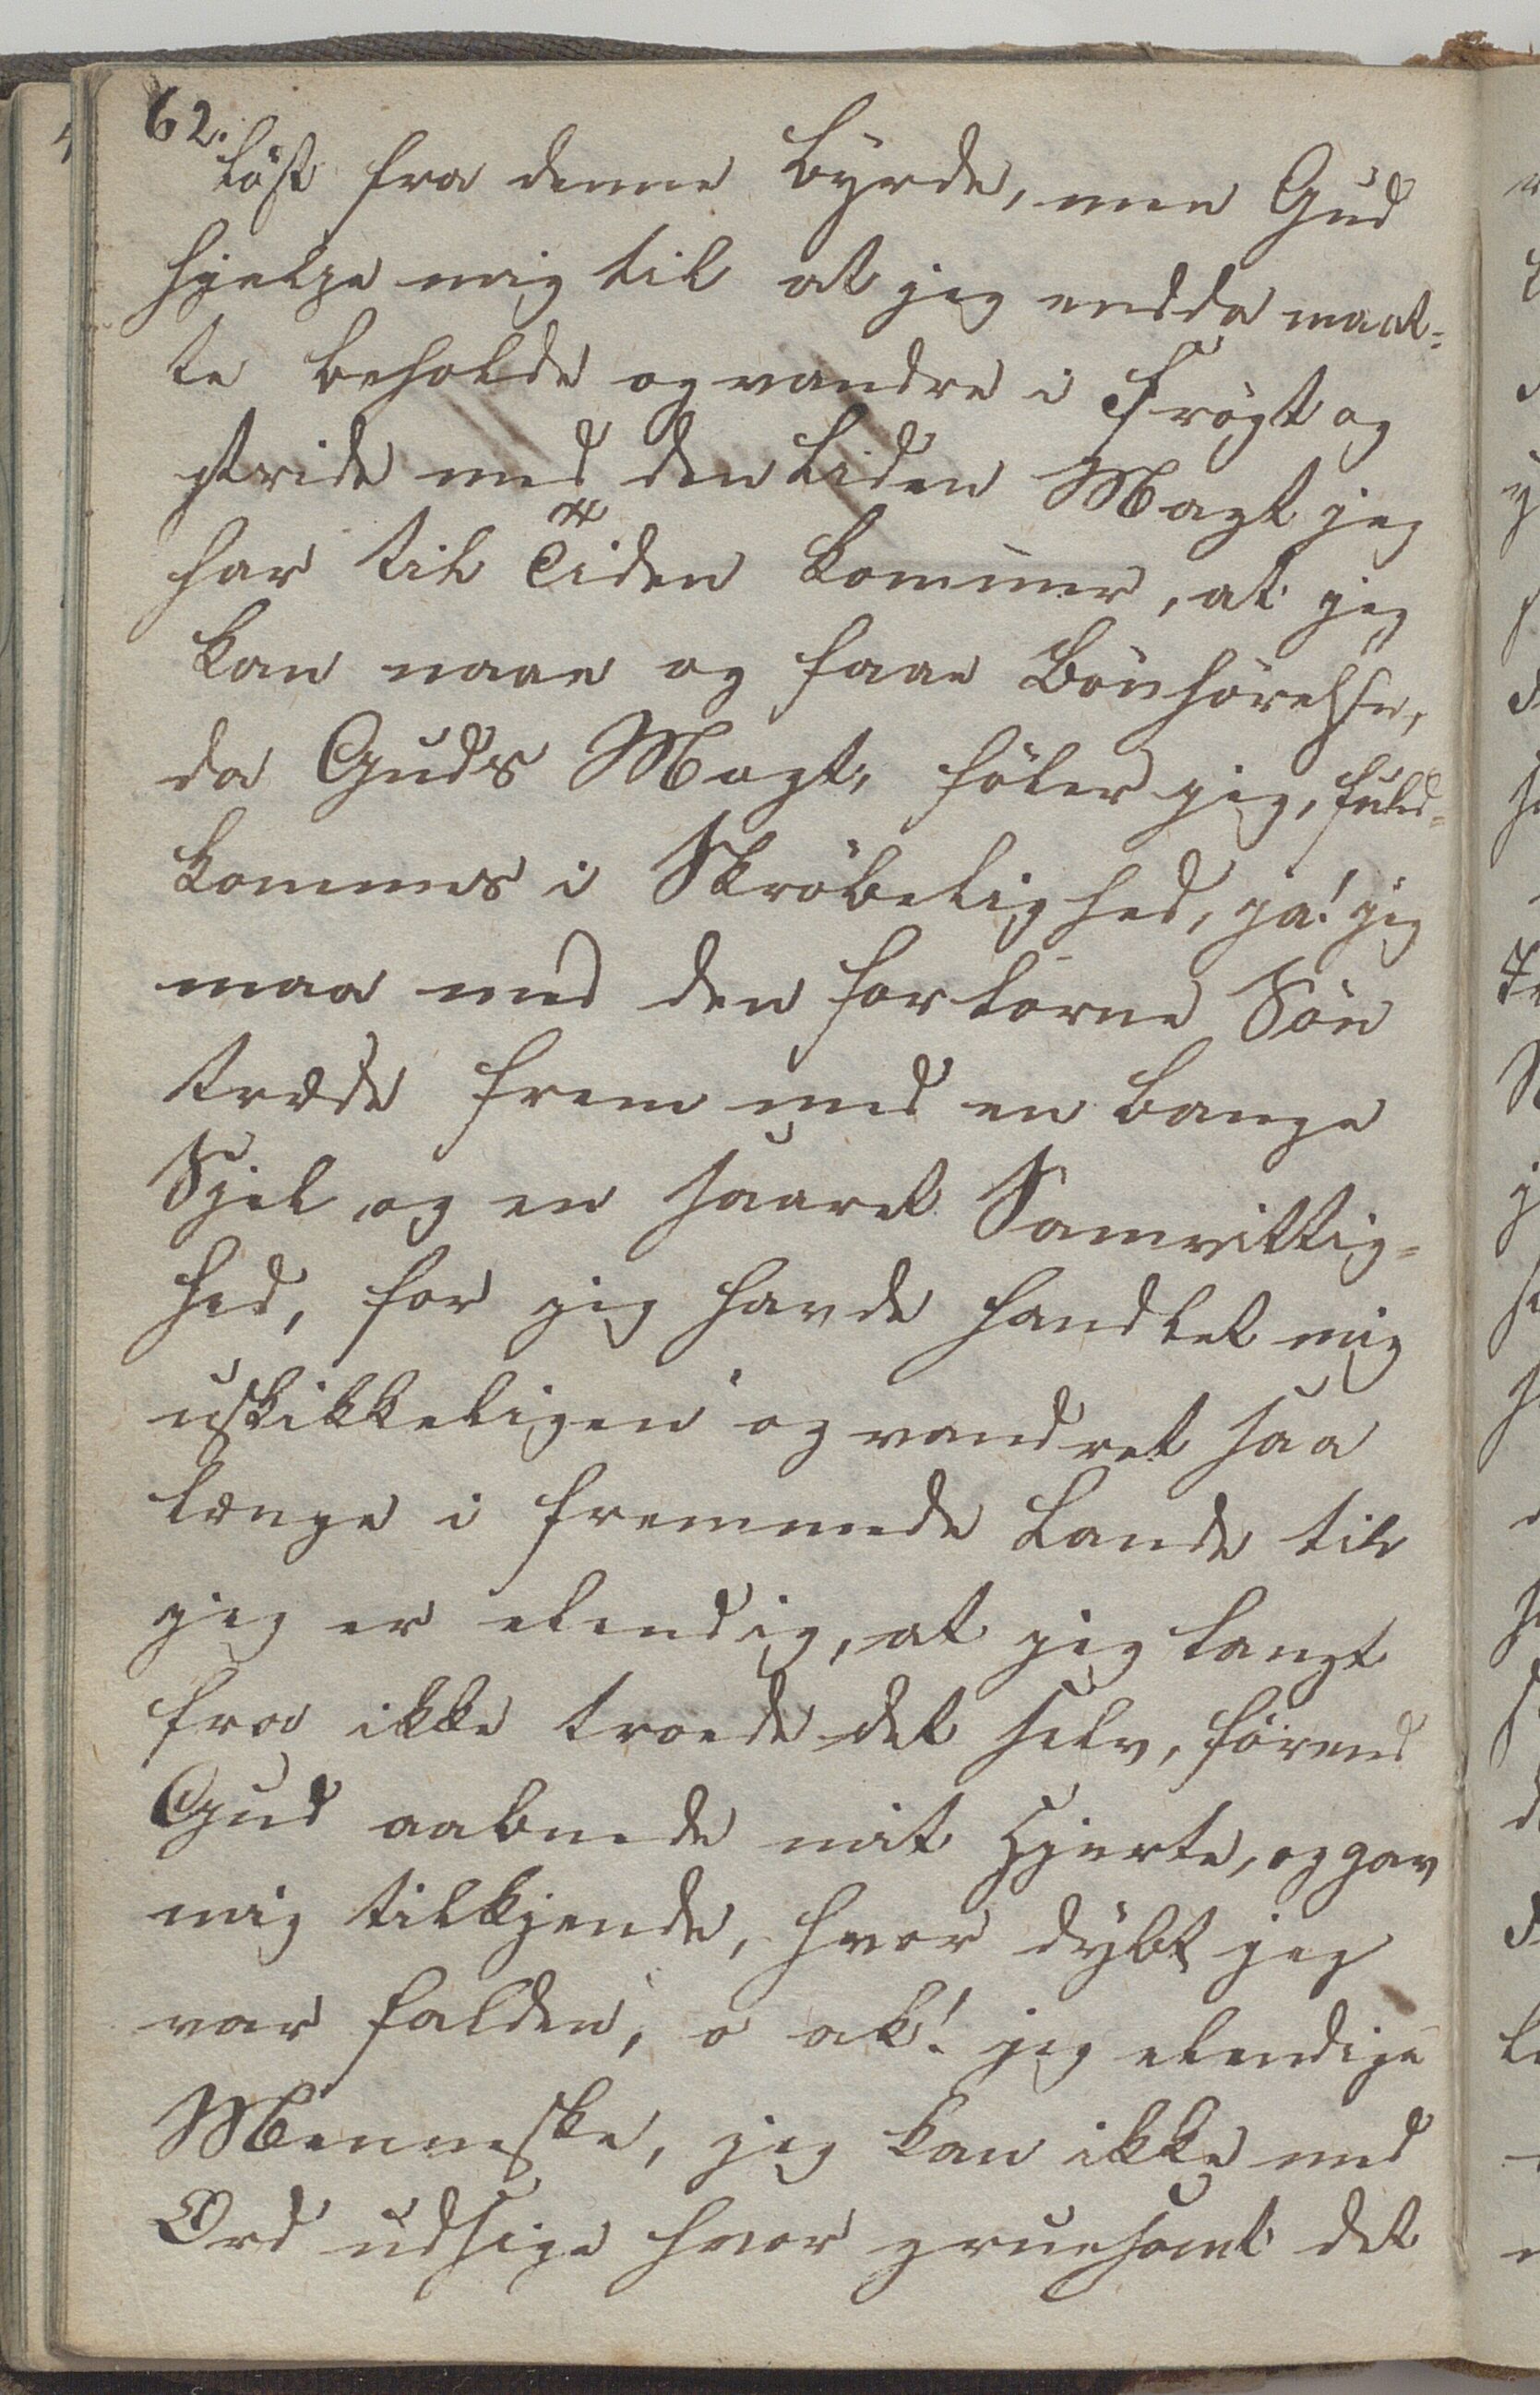 62.
löst fra denne Byrde, men Gud
hjelpe mig til at jeg endda maat=
te beholde og vandre i Frögt og
stride med den liden Magt jeg
har til Tiden kommer, at jeg
kan naae og faae Bönhörelse,
da Guds Magt, föler jeg, fuld=
kommes i Skröbelighed, ja! jeg
maa med den fortorne Sön
træde frem med en bange
Sjel og en saaret Samvittig=
hed, for jeg havde handlet mig
uskikkeligen og vandret saa
længe i fremmede Lande til
jeg er elendig, at jeg langt
fra ikke troede det selv, förend
Gud aabnede mit Hjerte, og gav
mig tilkjende, hvor dybt jeg
var falden, o ak! jeg elendige
Menneske, jeg kan ikke med
Ord udsige hvor gruesomt det